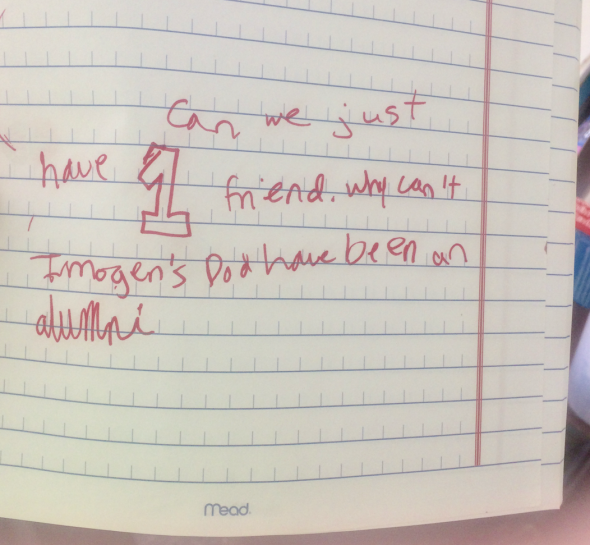 Can we just
have 1 friend. why can't
Imogen's Dad have been an
alumni
Mead